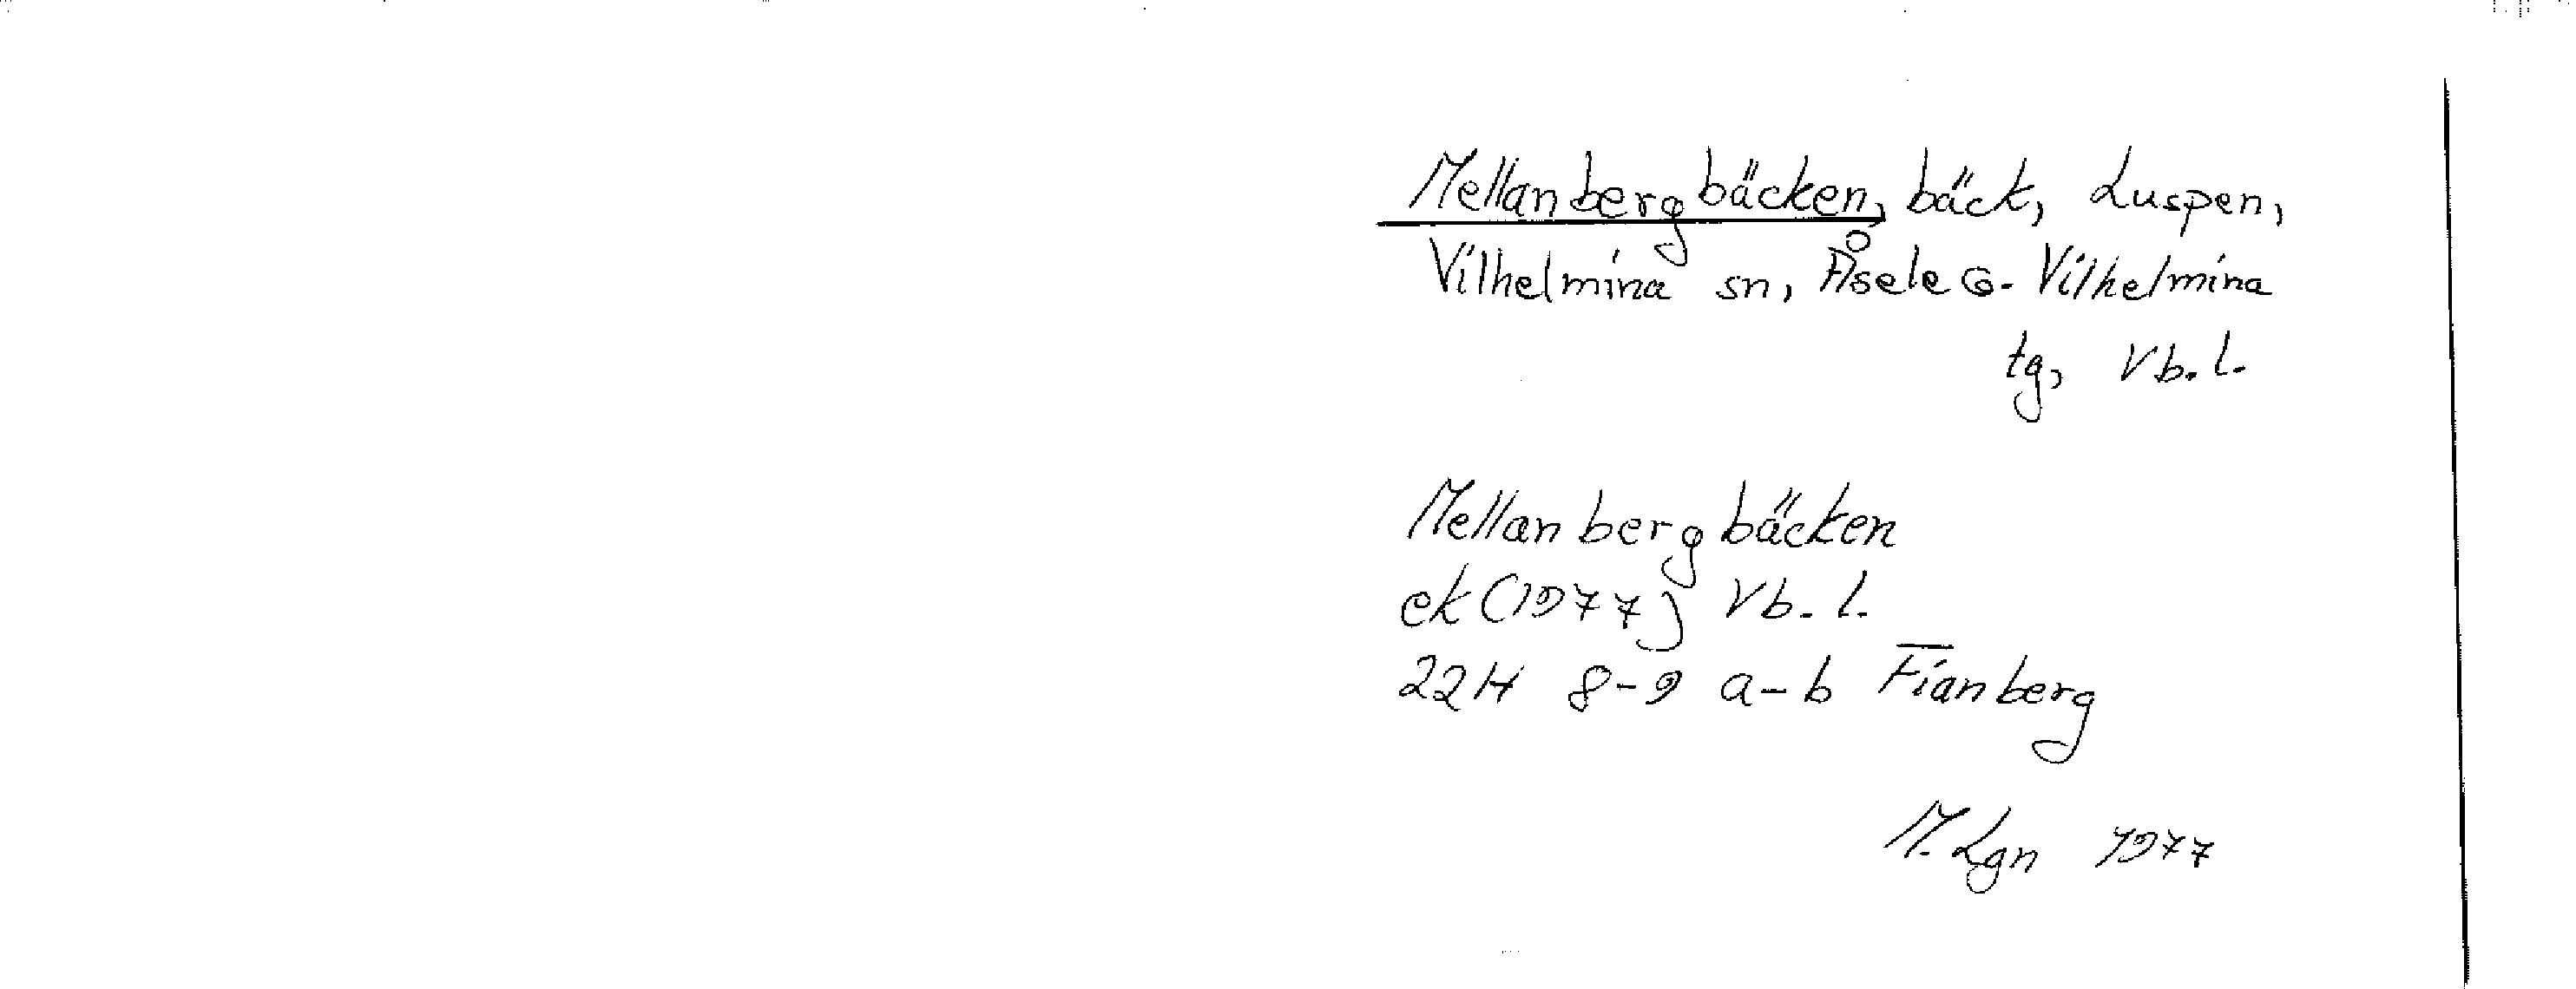 Mellanbergbäcken, bäck, Luspen,
Vilhelmina sn, Åsele o. Vilhelmina
tg, Vb. l.
Mellanbergbäcken
ek (1977) Vb. l.
22H 8-9 a-b Fianberg
M. Lgn 1977